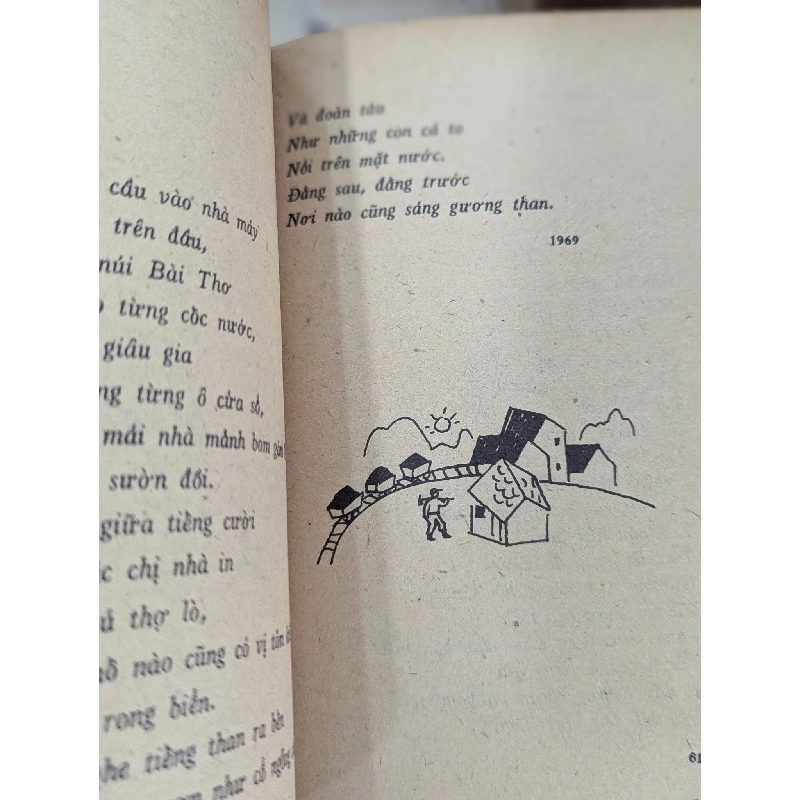 cầu vào nhà máy
trên đầu,
núi Bài Thơ
từng cốc nước,
giầu gia
từng ô cửa sổ,
mái nhà mảnh bom
sườn đồi.
giữa tiếng cười
chị nhà in
thợ lò,
nào cũng có vị
rong biển.
tiếng than ra bến
như cổ
Và đoàn tàu
Như những con cá to
Nổi trên mặt nước.
Đằng sau, đằng trước
Nơi nào cũng sáng gương than.
1969
61